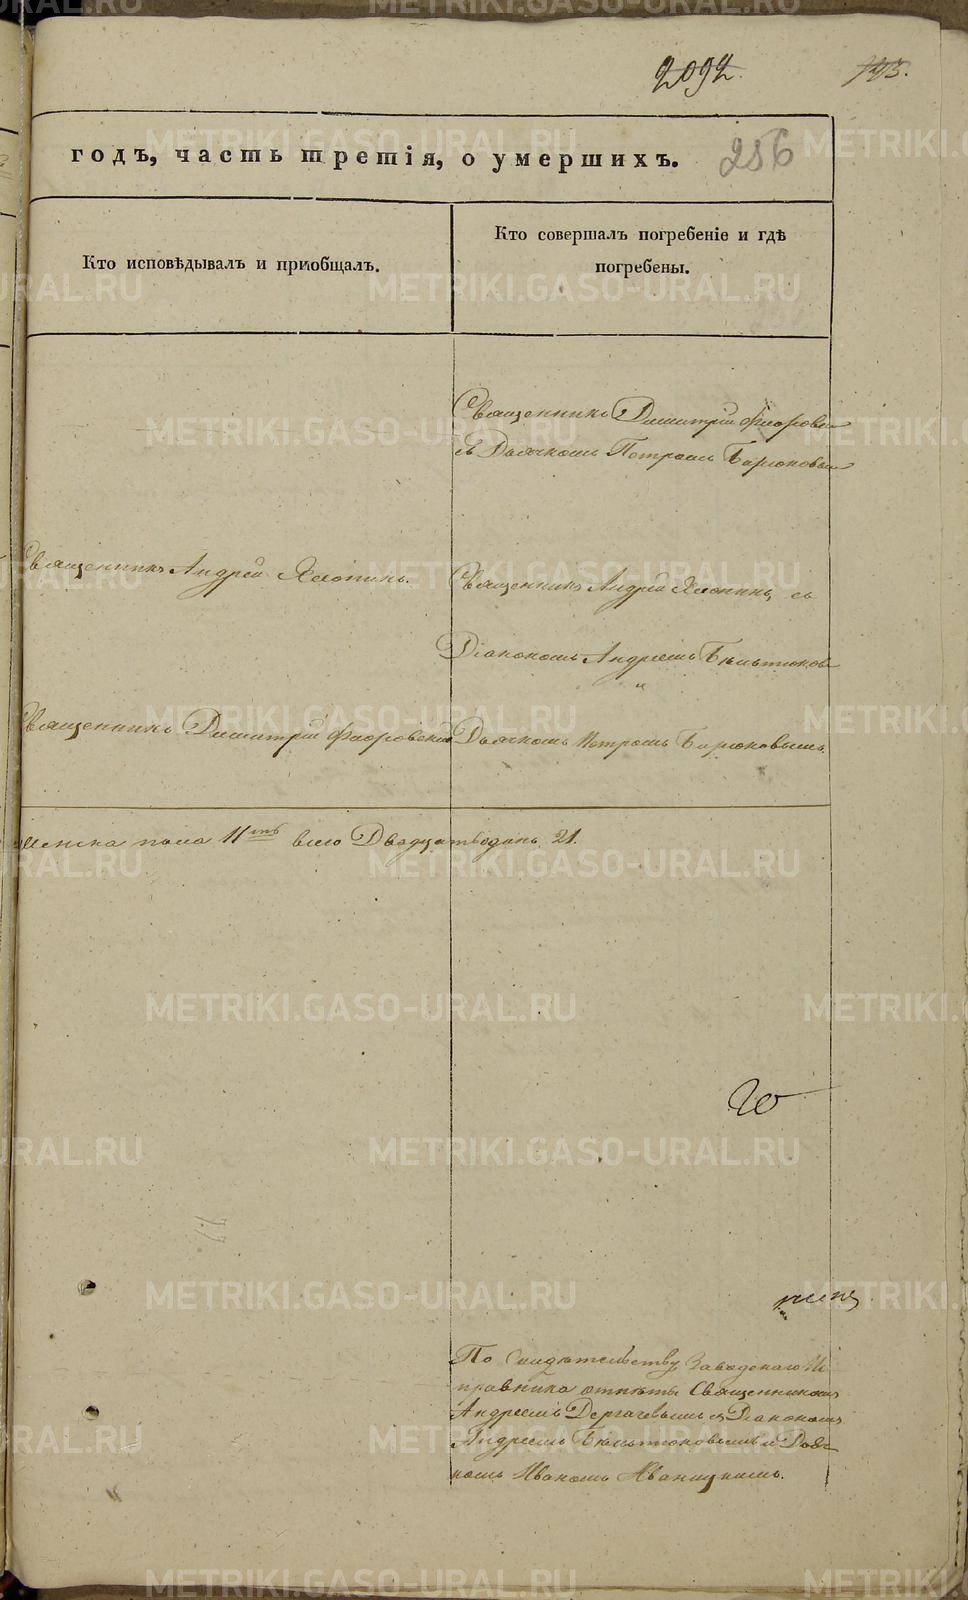 2092.
годъ, часть третія, о умершихъ. 256
Кто исповѣдывалъ и пріобщалъ.
Кто совершалъ погребеніе и гдѣ
погребены.
Священникъ Димитрій Флоровскій
съ Дьячкомъ Петромъ Бирюковым
Священникъ Андрей Хлопинъ.
Священникъ Андрей Хлопинъ, съ
Діакономъ Андреемъ Бѣльтюков
и
Священникъ Димитрій Флоровскій
Дьячкомъ Петромъ Бирюковымъ.
женска пола 11ть всего Двадцать одинъ 21.
По Свидѣтельству Заводскаго Ис
правника отпѣты Священникомъ
Андреемъ Дергачевымъ съ Діакономъ
Андреемъ Бѣльтюковымъ и Дьяч
комъ Иваномъ Иваницкимъ.
METRIKI.GASO-URAL.RU